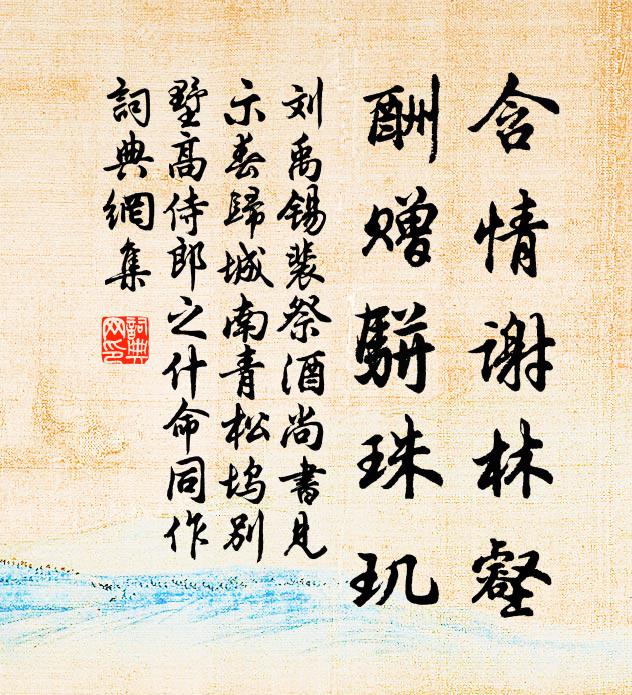 含情謝林壑
酬赠駢珠玑
刘禹锡裴祭酒尚書見
示春歸城南青松坞别
墅高侍郎之什命同作
詞典網集
詞典网印